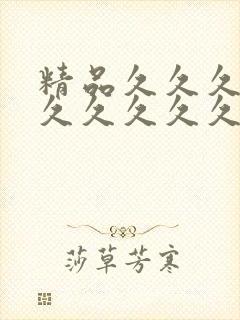 精品久久久
久久久久久
莎草芳寒